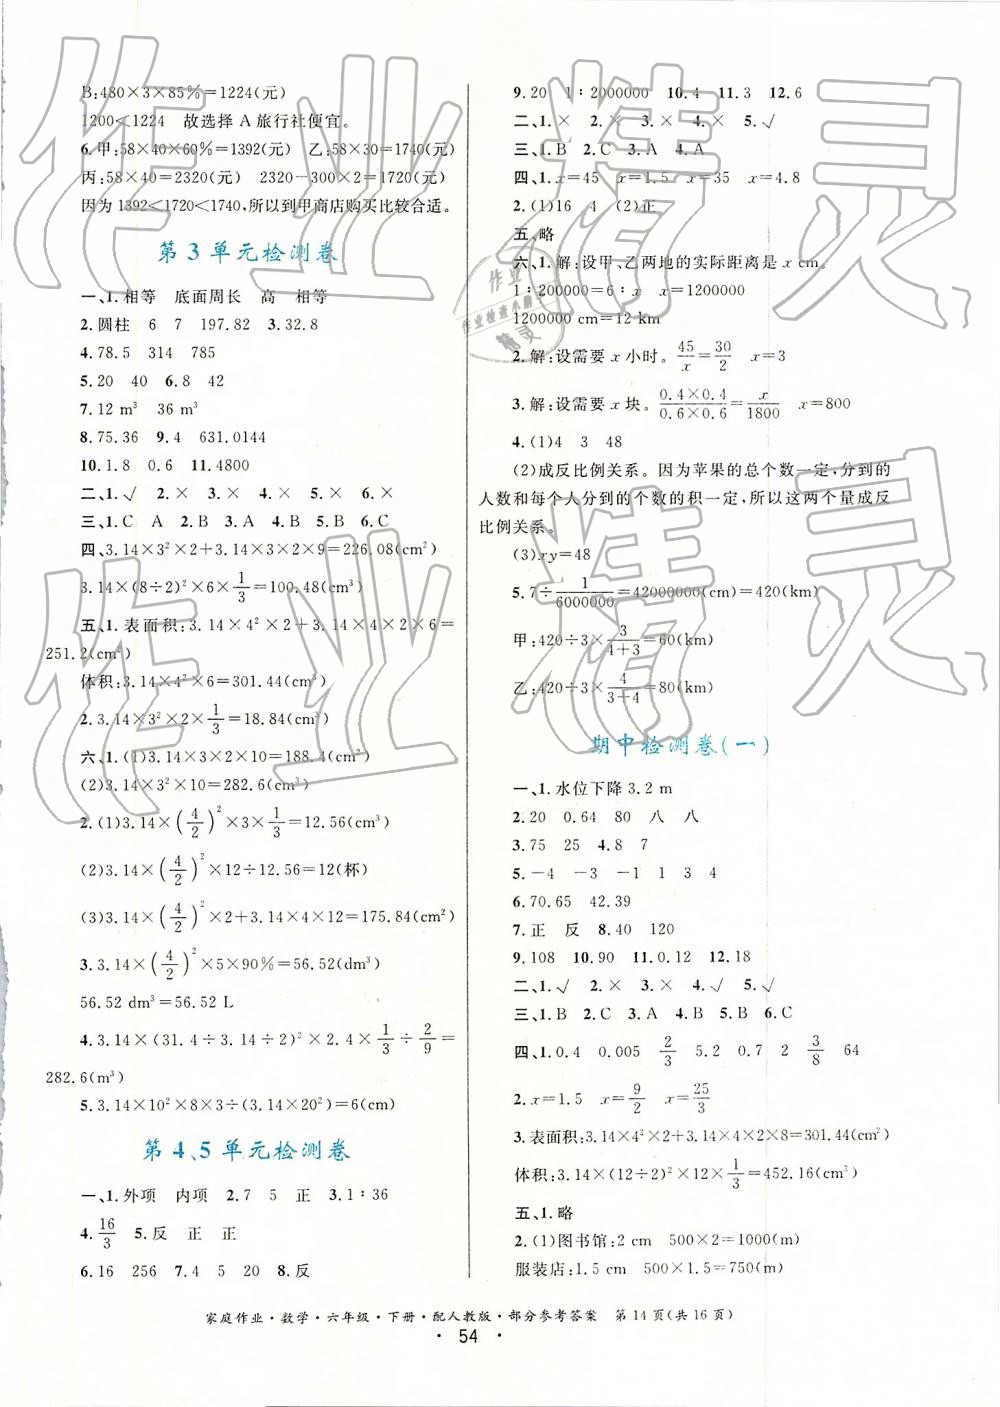 B:480×3×85%=1224(元)
1200<1224 故选择 A 旅行社便宜。
6.甲:58×40×60%=1392(元) 乙:58×30=1740(元)
丙:58×40=2320(元) 2320-300×2=1720(元)
因为 1392<1720<1740,所以到甲商店购买比较合适。
第3单元检测卷
一、1.相等 底面周长 高 相等
2.圆柱 6 7 197.82 3.32.8
4.78.5 314 785
5.20 40 6.8 42
7.12 m³ 36 m³
8.75.36 9.4 631.0144
10.1.8 0.6 11.4800
二、1.√ 2.× 3.× 4.× 5.× 6.×
三、1.C A 2.B 3.A 4.B 5.B 6.C
四、3.14×3²×2+3.14×3×2×9=226.08(cm²)
3.14×(8÷2)²×6×1/3=100.48(cm³)
五、1.表面积:3.14×4²×2+3.14×4×2×6=
251.2(cm²)
体积:3.14×4²×6=301.44(cm³)
2.3.14×3²×2×1/3=18.84(cm³)
六、1.(1)3.14×3×2×10=188.4(cm²)
(2)3.14×3²×10=282.6(cm³)
2.(1)3.14×(4/2)²×3×1/3=12.56(cm³)
(2)3.14×(4/2)²×12÷12.56=12(杯)
(3)3.14×(4/2)²×2+3.14×4×12=175.84(cm²)
3.3.14×(4/2)²×5×90%=56.52(dm³)
56.52 dm³=56.52 L
4.3.14×(31.4÷3.14÷2)²×2.4×1/3÷2/9=
282.6(m³)
5.3.14×10²×8×3÷(3.14×20²)=6(cm)
第4、5单元检测卷
一、1.外项 内项 2.7 5 正 3.1∶36
4.16/3 5.反 正 正
6.16 256 7.4 5 20 8.反
9.20 1∶2000000 10.4 11.3 12.6
二、1.× 2.× 3.× 4.× 5.√
三、1.B 2.C 3.A 4.A
四、1.x=45 x=1.5 x=35 x=4.8
2.(1)16 4 (2)正
五、略
六、1.解:设甲、乙两地的实际距离是 x cm。
1∶200000=6∶x x=1200000
1200000 cm=12 km
2.解:设需要 x 小时。45/x=30/2 x=3
3.解:设需要 x 块。0.4×0.4/0.6×0.6=x/1800 x=800
4.(1)4 3 48
(2)成反比例关系。因为苹果的总个数一定,分到的
人数和每个人分到的个数的积一定,所以这两个量成反
比例关系。
(3)xy=48
5.7÷1/6000000=42000000(cm)=420(km)
甲:420÷3×3/4+3=60(km)
乙:420÷3×4/3+4=80(km)
期中检测卷(一)
一、1.水位下降 3.2 m
2.20 0.64 80 八 八
3.75 25 4.8 7
5.-4 -3 -1 1 3 4
6.70.65 42.39
7.正 反 8.40 120
9.108 10.90 11.0.12 12.18
二、1.√ 2.× 3.× 4.√ 5.√
三、1.B 2.C 3.A 4.B 5.B 6.C
四、1.0.4 0.005 2/3 5.2 0.7 2 3/8 64
2.x=1.5 x=9/2 x=25/3
3.表面积:3.14×4²×2+3.14×4×2×8=301.44(cm²)
体积:3.14×(12÷2)²×12×1/3=452.16(cm³)
五、1.略
2.(1)图书馆:2 cm 500×2=1000(m)
服装店:1.5 cm 500×1.5=750(m)
家庭作业·数学·六年级·下册·配人教版·部分参考答案 第14页(共16页)
·54·
作业精灵
作业
作业检查小
精灵